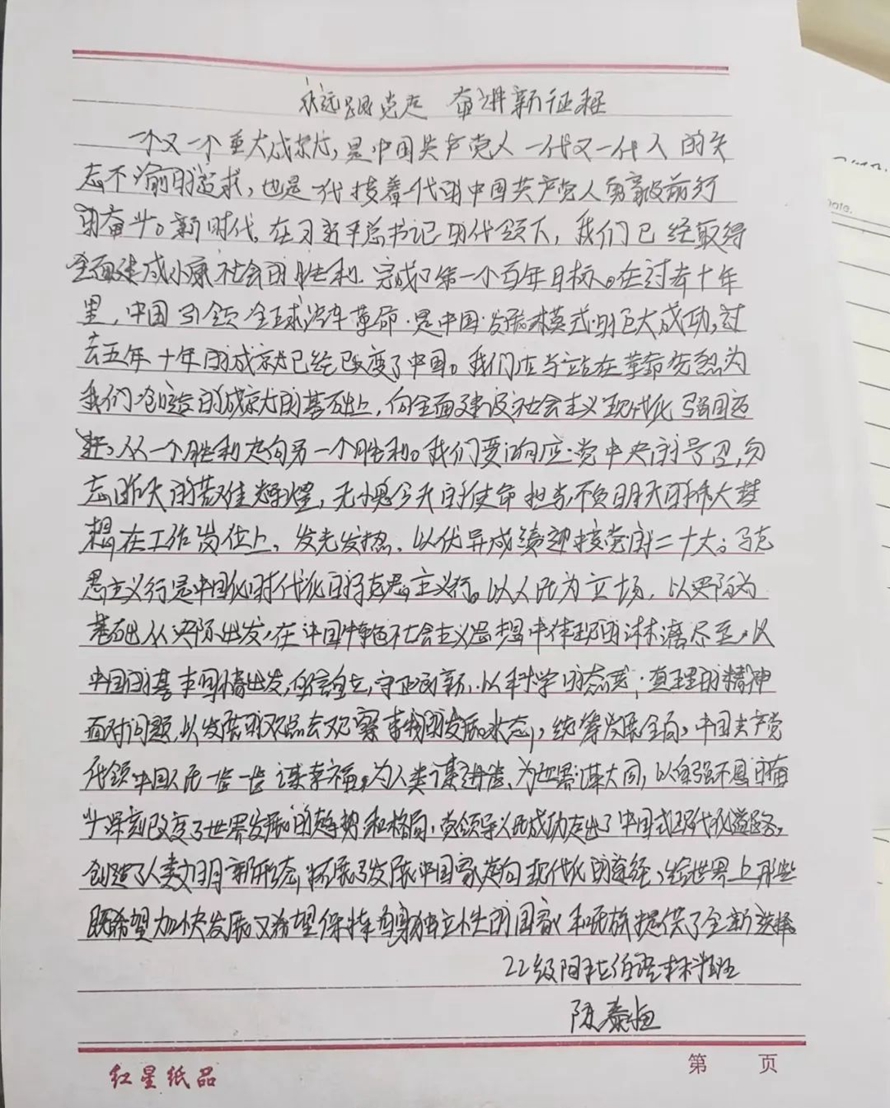 永远跟党走 奋进新征程
一个又一个重大成就,是中国共产党人一代又一代人的矢
志不渝的追求,也是一代接着一代的中国共产党人勇毅前行
的奋斗。新时代,在习近平总书记的代领下,我们已经取得
全面建成小康社会的胜利.完成了第一个百年目标。在过去十年
里,中国引领全球汽车革命.是中国发展模式的巨大成功,过
去五年十年的成就已经改变了中国。我们应当站在革命先烈为
我们创造的成就的基础上,向全面建设社会主义现代化强国迈
进,从一个胜利走向另一个胜利。我们要响应党中央的号召,勿
忘昨天的 辉煌,无愧今天的使命担当,不负明天的伟大梦
想,在工作岗位上,发光发热,以优异成绩迎接党的二十大。马克
思主义行是中国化时代化的马克思主义行。以人民为立场,以实际为
基础从实际出发,在中国特色社会主义思想中体现的淋漓尽至,从
中国的基本国情出发,自信自立,守正创新.以科学的态度.真理的精神
面对问题,以发展的观点去观察事物的发展状态,统筹发展全局,中国共产党
代领中国人民一齐一齐谋幸福,为人类谋进步、为世界谋大同,以自强不息的奋
斗深刻改变了世界发展的趋势和格局.党领导人民成功走出了中国式现代化道路,
创造了人类文明新形态,拓展了发展中国家走向现代化的途径,给世界上那些
既希望加快发展又希望保持自身独立性的国家和民族提供了全新选择
22级阿拉伯语本科班
陈泰恒
红星纸品
第 页